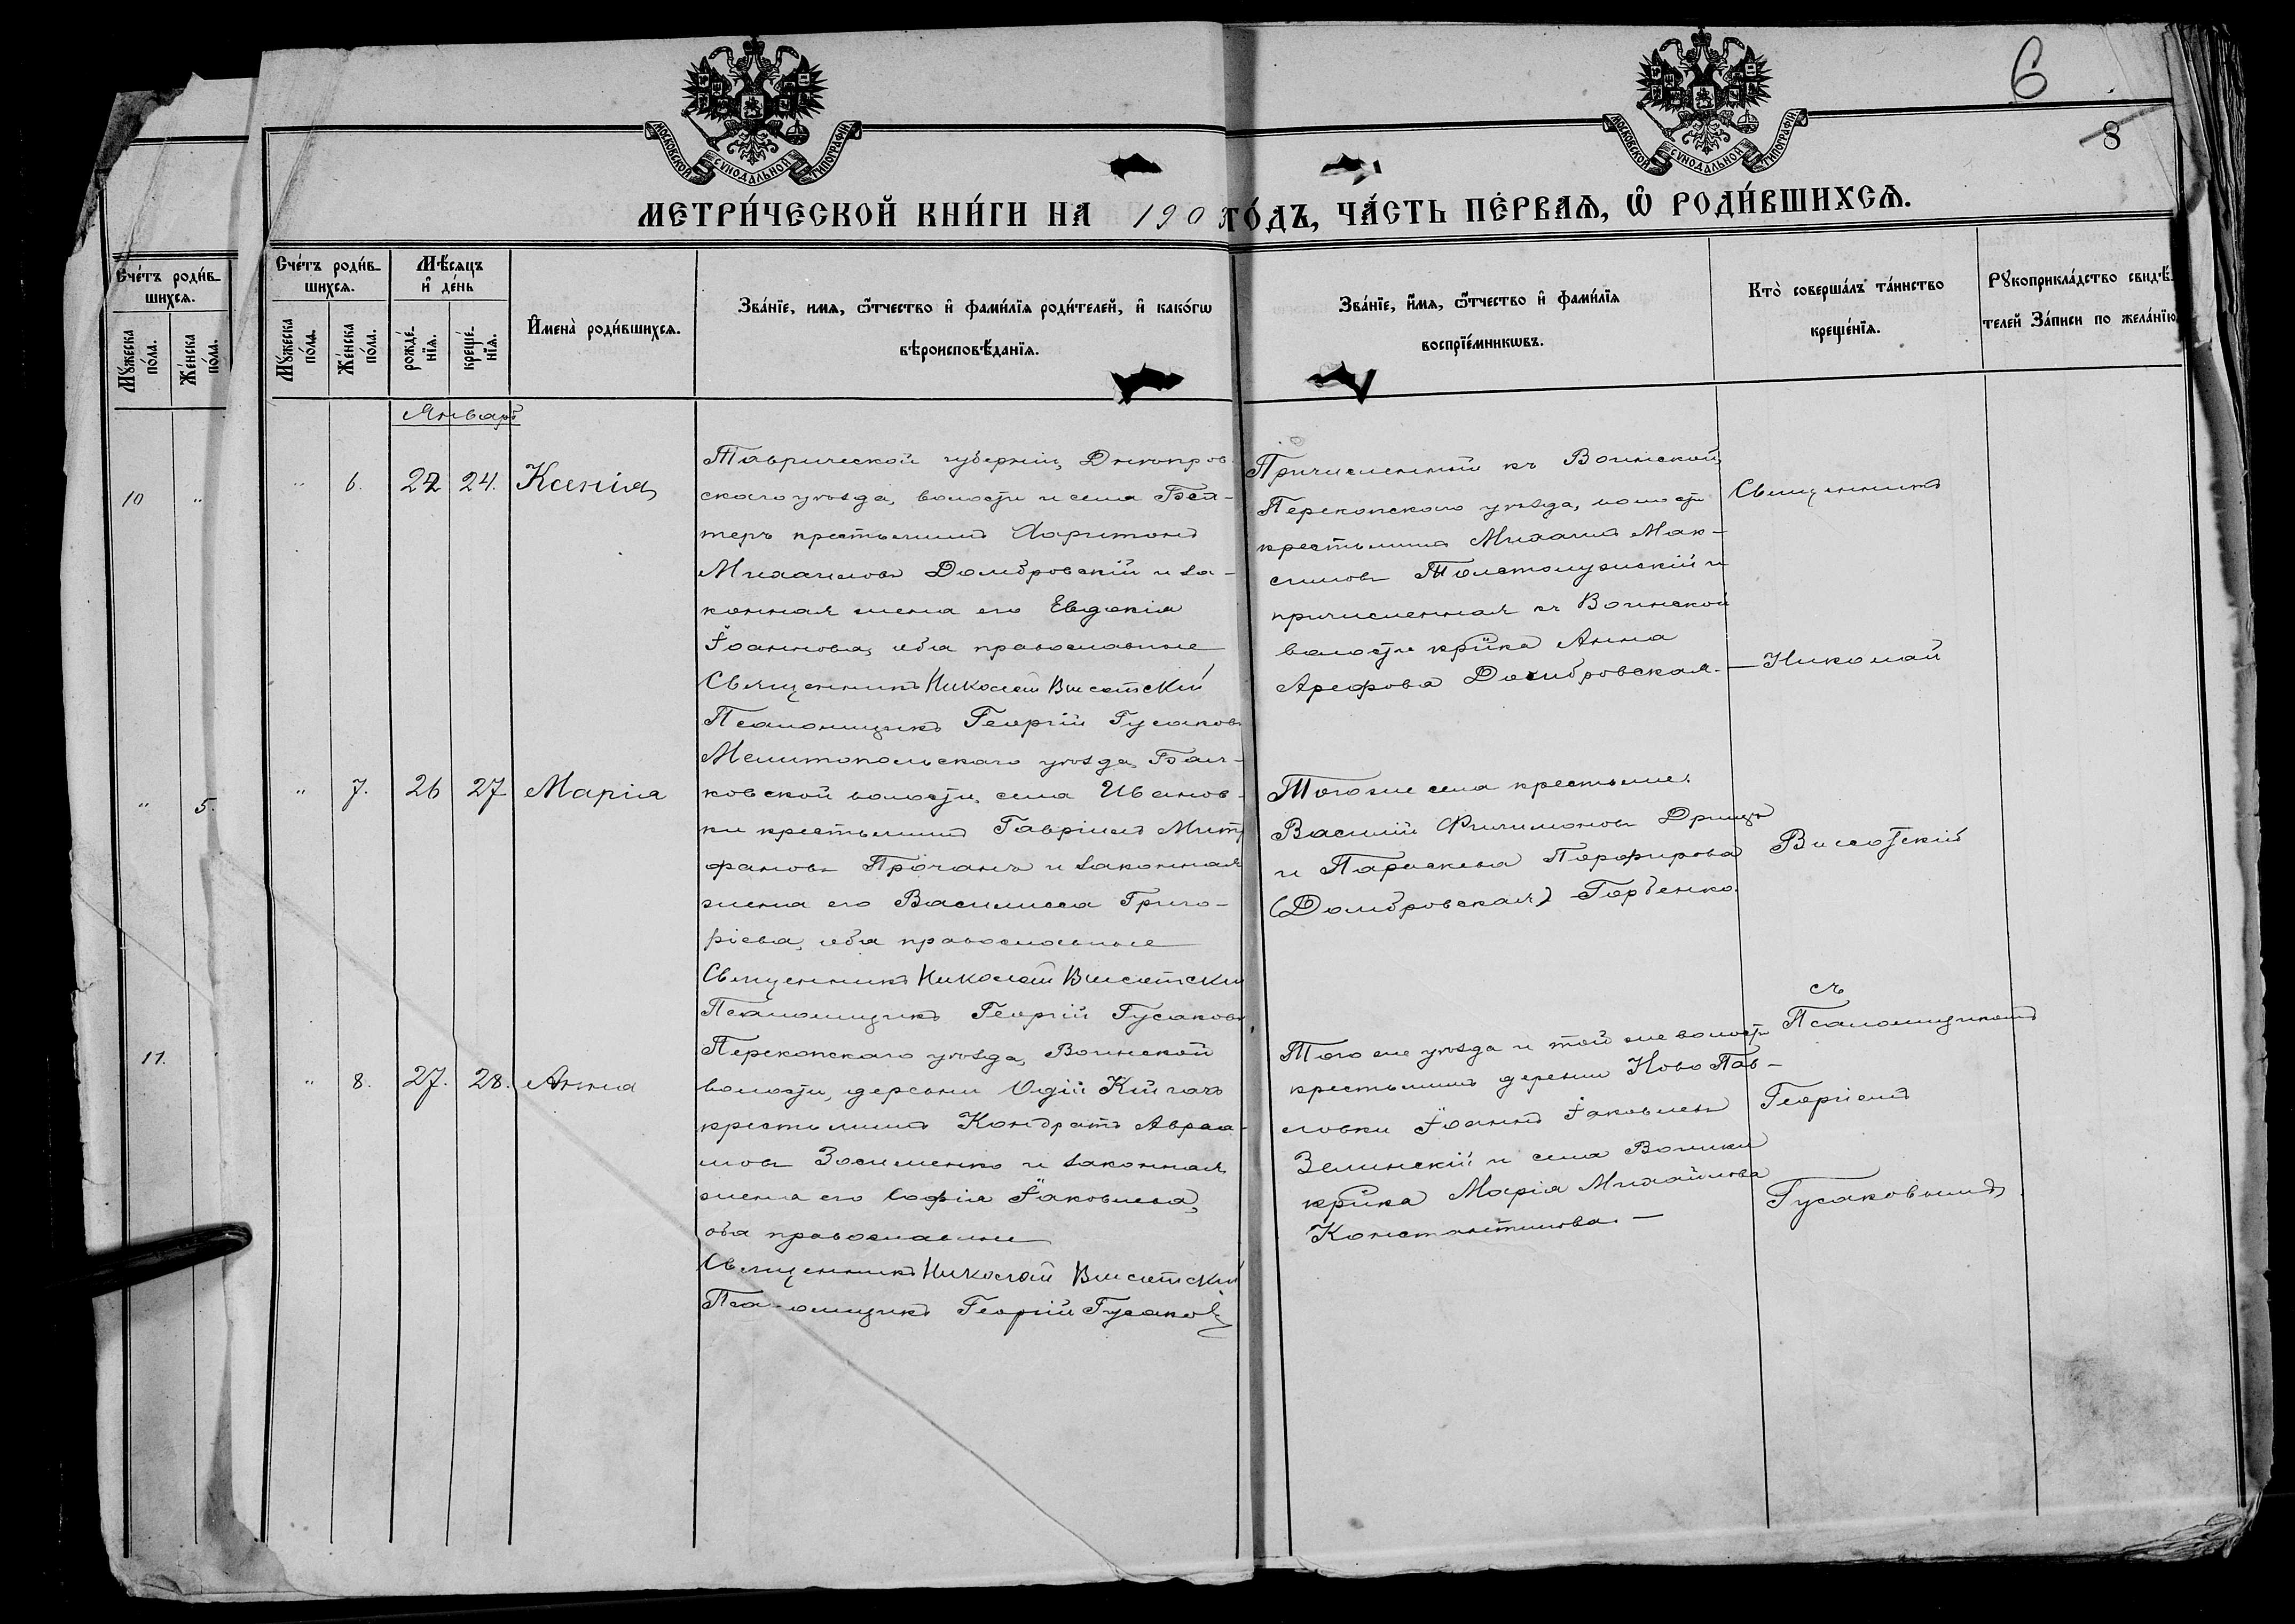 6
8
МОСКОВСКОЙ СѴНОДАЛЬНОЙ ТИПОГРАФІИ
МОСКОВСКОЙ СѴНОДАЛЬНОЙ ТИПОГРАФІИ
МЕТРИ́ЧЕСКОЙ КНИ́ГИ НА 190 ГО́ДЪ, ЧА́СТЬ ПЕ́РВАѦ, Ѡ҆ РОДИ́ВШИХСѦ.
Сче́тъ роди́в-
шихсѧ.
Мꙋ́жеска по́ла.
Же́нска по́ла.
10 "
" 5.
11.
Сче́тъ роди́в-
шихсѧ.
Мꙋ́жеска по́ла.
Же́нска по́ла.
Мѣ́сѧцъ
и҆ де́нь
рожде́-
нїѧ.
креще́-
нїѧ.
И҆мена̀ роди́вшихсѧ.
Зва́нїе, имѧ, ѻ҆́тчество и҆ фами́лїѧ роди́телей, и҆ како́гѡ
вѣроисповѣ́данїѧ.
Зва́нїе, и҆́мѧ, ѻ҆́тчество и҆ фами́лїѧ
воспрїе́мникѡвъ.
Кто̀ соверша́лъ та́инство
креще́нїѧ.
Рꙋкоприкла́дство свидѣ́-
телей За́писи по жела́нїю
Январь
" 6. 22 24. Ксенія
Таврической губерніи, Днѣпров
скаго уѣзда, волости и села Бех-
теръ крестьянинъ Харитонъ
Михаиловъ Домбровскій и за-
конная жена его Евдокія
Іоаннова, оба православные
Священникъ Николай Высотскій
Псаломщикъ Георгій Гусаковъ
Причисленный къ Воинской,
Перекопскаго уѣзда, волости
крестьянинъ Михаилъ Мак-
симовъ Толстолужскій и
причисленная къ Воинской
волости кр̃нка Анна
Арефова Домбровская.—
" 7. 26 27 Марія
Мелитопольскаго уѣзда, Бал-
ковской волости, села Иванов-
ки крестьянинъ Гавріилъ Митр
фановъ Прочанъ и законная
жена его Василисса Григо-
рьева, оба православные
Священникъ Николай Высотскій
Псаломщикъ Георгій Гусаковъ
Того же села крестьяне:
Василій Филимоновъ
и Параскева Порфирова
(Домбровская) Горбенко.
" 8. 27. 28. Анна
Перекопскаго уѣзда, Воинской
волости, деревни
крестьянинъ Кондратъ Авраа-
мовъ Зосименко и законная
жена его Софія Іаковлева,
оба православные
Священникъ Николай Высотскій
Псаломщикъ Георгій Гусаковъ
Того же уѣзда и той же волости
крестьянинъ деревни Ново Пав-
ловки Іоаннъ Іаковлевъ
Зелинскій и села Воинки
кр̃нка Марія Михайлова
Константинова.—
Священникъ
Николай
Высотскій
съ
Псаломщикомъ
Георгіемъ
Гусаковымъ